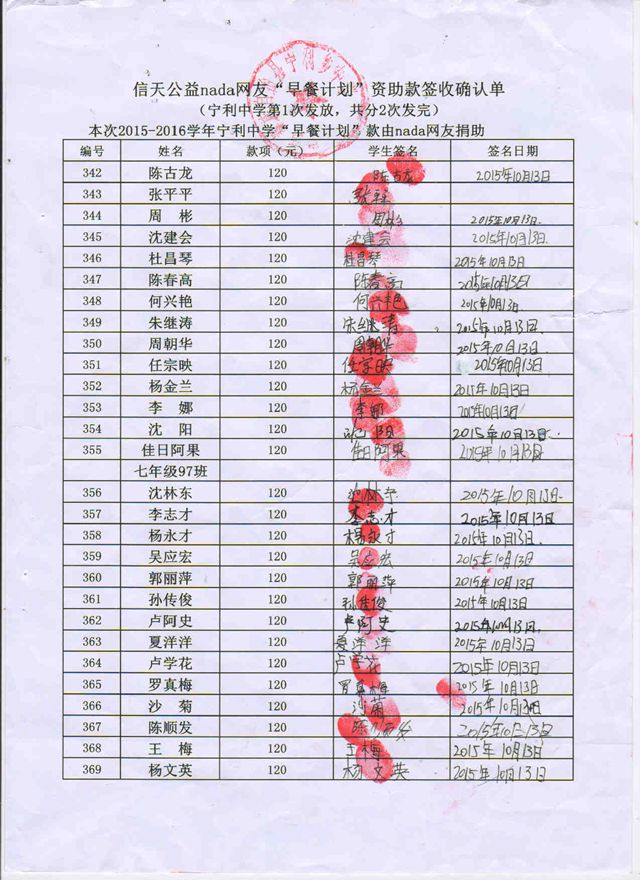 信天公益nada网友“早餐计划”资助款签收确认单
（宁利中学第1次发放，共分2次发完）
本次2015-2016学年宁利中学“早餐计划”款由nada网友捐助
编号 姓名 款项（元） 学生签名 签名日期
342 陈古龙 120 陈古龙 2015年10月13日
343 张平平 120
344 周 彬 120 周彬 2015年10月13日.
345 沈建会 120 沈建会 2015年10月13日.
346 杜昌琴 120 杜昌琴 2015年10月13日
347 陈春高 120 陈春高 2015年10月13日
348 何兴艳 120 何兴艳 2015年10月13日.
349 朱继涛 120 2015年10月13日.
350 周朝华 120 周朝华 2015年10月13日
351 任宗映 120 任宗映 2015年10月13日
352 杨金兰 120 杨金兰 2015年10月13日
353 李 娜 120 李娜 2015年10月13日
354 沈 阳 120 沈阳 2015年10月13日.
355 佳日阿果 120 佳日阿果 2015年10月13日
七年级97班
356 沈林东 120 沈林东 2015年10月13日
357 李志才 120 李志才 2015年10月13日
358 杨永才 120 杨永才 2015年10月13日
359 吴应宏 120 吴应宏 2015年10月13日
360 郭丽萍 120 郭丽萍 2015年10月13日
361 孙传俊 120 孙传俊 2015年10月13日
362 卢阿史 120 卢阿史 2015年10月13日.
363 夏洋洋 120 夏洋洋 2015年10月13日
364 卢学花 120 卢学花 2015年10月13日
365 罗真梅 120 罗真梅 2015年10月13日
366 沙 菊 120 沙菊 2015年10月13日
367 陈顺发 120 2015年10月13日
368 王 梅 120 王梅 2015年10月13日
369 杨文英 120 杨文英 2015年10月13日